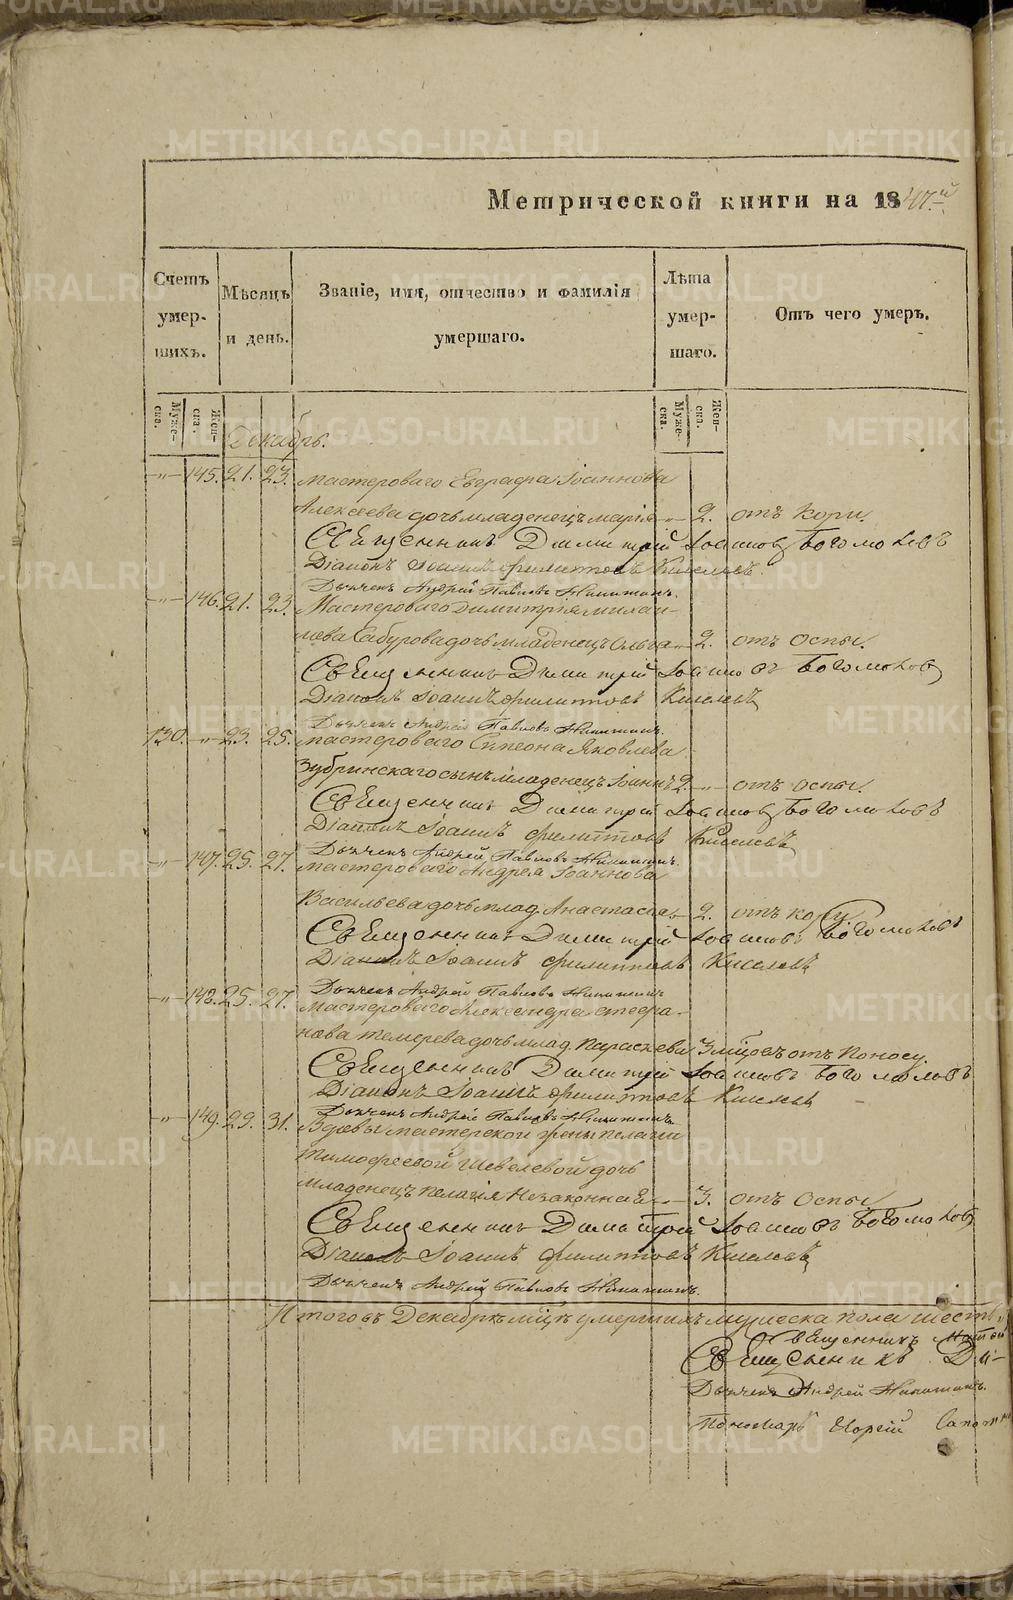 Метрической книги на 1847й
Счетъ умер- шихъ.
Мѣсяцъ и день.
Званіе, имя, отчество и фамилія умершаго.
Лѣта умер- шаго.
Отъ чего умеръ.
Муже- ска. Жен- ска.
Муже- ска. Жен- ска.
Декабрь.
-"- 145. 21. 23. Мастероваго Евграфа Іоаннова
Алексеева дочь младенецъ Марія -"- 2. отъ кори.
Священникъ Димитрій Іоанновъ Богомоловъ
Діаконъ Іоаннъ Филипповъ Киселевъ.
Дьячекъ Андрей Павловъ Никитинъ.
-"- 146. 21. 23. Мастероваго Димитрія Михаи-
лова Сабурова дочь младенецъ Ольга -"- 2. отъ оспы.
Священникъ Димитрій Іоанновъ Богомоловъ
Діаконъ Іоаннъ Филипповъ Киселевъ
Дьячекъ Андрей Павловъ Никитинъ.
130. -"- 23. 25. Мастероваго Симеона Яковлева
Зубринскаго сынъ младенецъ Іоаннъ 2. -"- отъ оспы.
Священникъ Димитрій Іоанновъ Богомоловъ
Діаконъ Іоаннъ Филипповъ Киселевъ
Дьячекъ Андрей Павловъ Никитинъ.
-"- 147. 25. 27. Мастероваго Андрея Іоаннова
Васильева дочь млад. Анастасія -"- 2. отъ кори
Священникъ Димитрій Іоанновъ Богомоловъ
Діаконъ Іоаннъ Филипповъ Киселевъ
Дьячекъ Андрей Павловъ Никитинъ
-"- 148. 25. 27. Мастероваго Александра Стефа-
нова дочь млад. Параскева 3 мѣсяц. отъ поносу.
Священникъ Димитрій Іоанновъ Богомоловъ
Діаконъ Іоаннъ Филипповъ Киселевъ
Дьячекъ Андрей Павловъ Никитинъ.
-"- 149. 29. 31. Вдовы мастерской жены Пелагіи
Тимофеевой Шевелевой дочь
младенецъ Пелагія незаконная -"- 3. отъ оспы
Священникъ Димитрій Іоанновъ Богомоловъ
Діаконъ Іоаннъ Филипповъ Киселевъ
Дьячекъ Андрей Павловъ Никитинъ.
Итого въ Декабрѣ мцѣ умершихъ мужеска пола шесть,
Священникъ
Священникъ Ди-
Дьячекъ Андрей Никитинъ.
Пономарь
METRIKI.GASO-URAL.RU